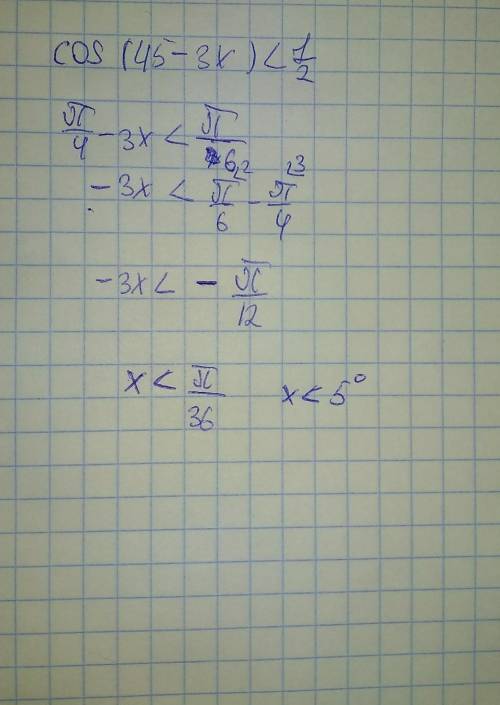 cos (45-3x) < 1/2
π/4 - 3x < π/6
-3x < π/6 - π/4
-3x < - π/12
x < π/36 x < 5°